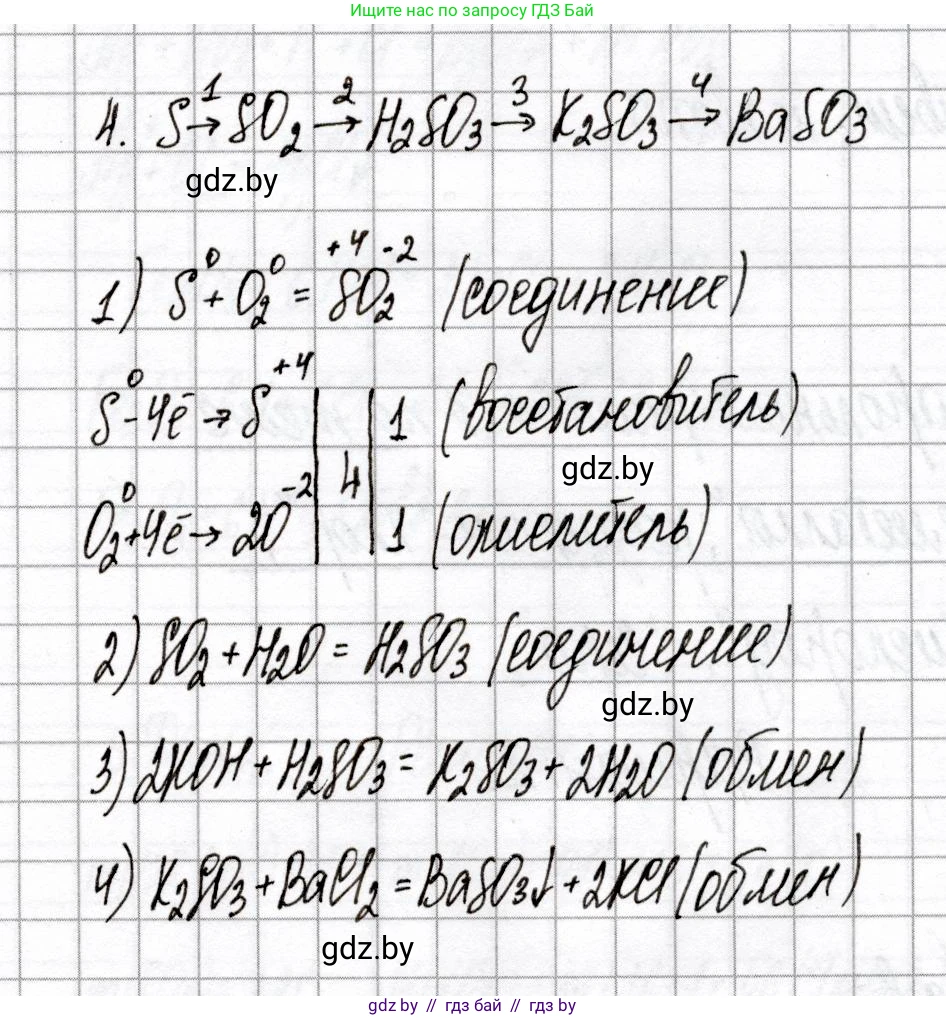 Ищите нас по запросу ГДЗ Бай
4. S →¹ SO₂ →² H₂SO₃ →³ K₂SO₃ →⁴ BaSO₃
gdz.by
1) S⁰ + O₂⁰ = S⁺⁴O₂⁻² (соединение)
S⁰ - 4ē → S⁺⁴ | | 1 (восстановитель)
gdz.by
4
O₂⁰ + 4ē → 2O⁻² | | 1 (окислитель)
2) SO₂ + H₂O = H₂SO₃ (соединение)
gdz.by
3) 2KOH + H₂SO₃ = K₂SO₃ + 2H₂O (обмен)
4) K₂SO₃ + BaCl₂ = BaSO₃↓ + 2KCl (обмен)
gdz.by
gdz.by // гдз бай // гдз by